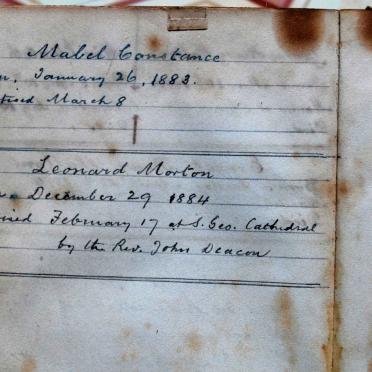 Mabel Constance
n, January 26, 1883.
tised March 8
Leonard Morton
n December 29 1884
ised February 17 at S. Geo. Cathedral
by the Rev. John Deacon